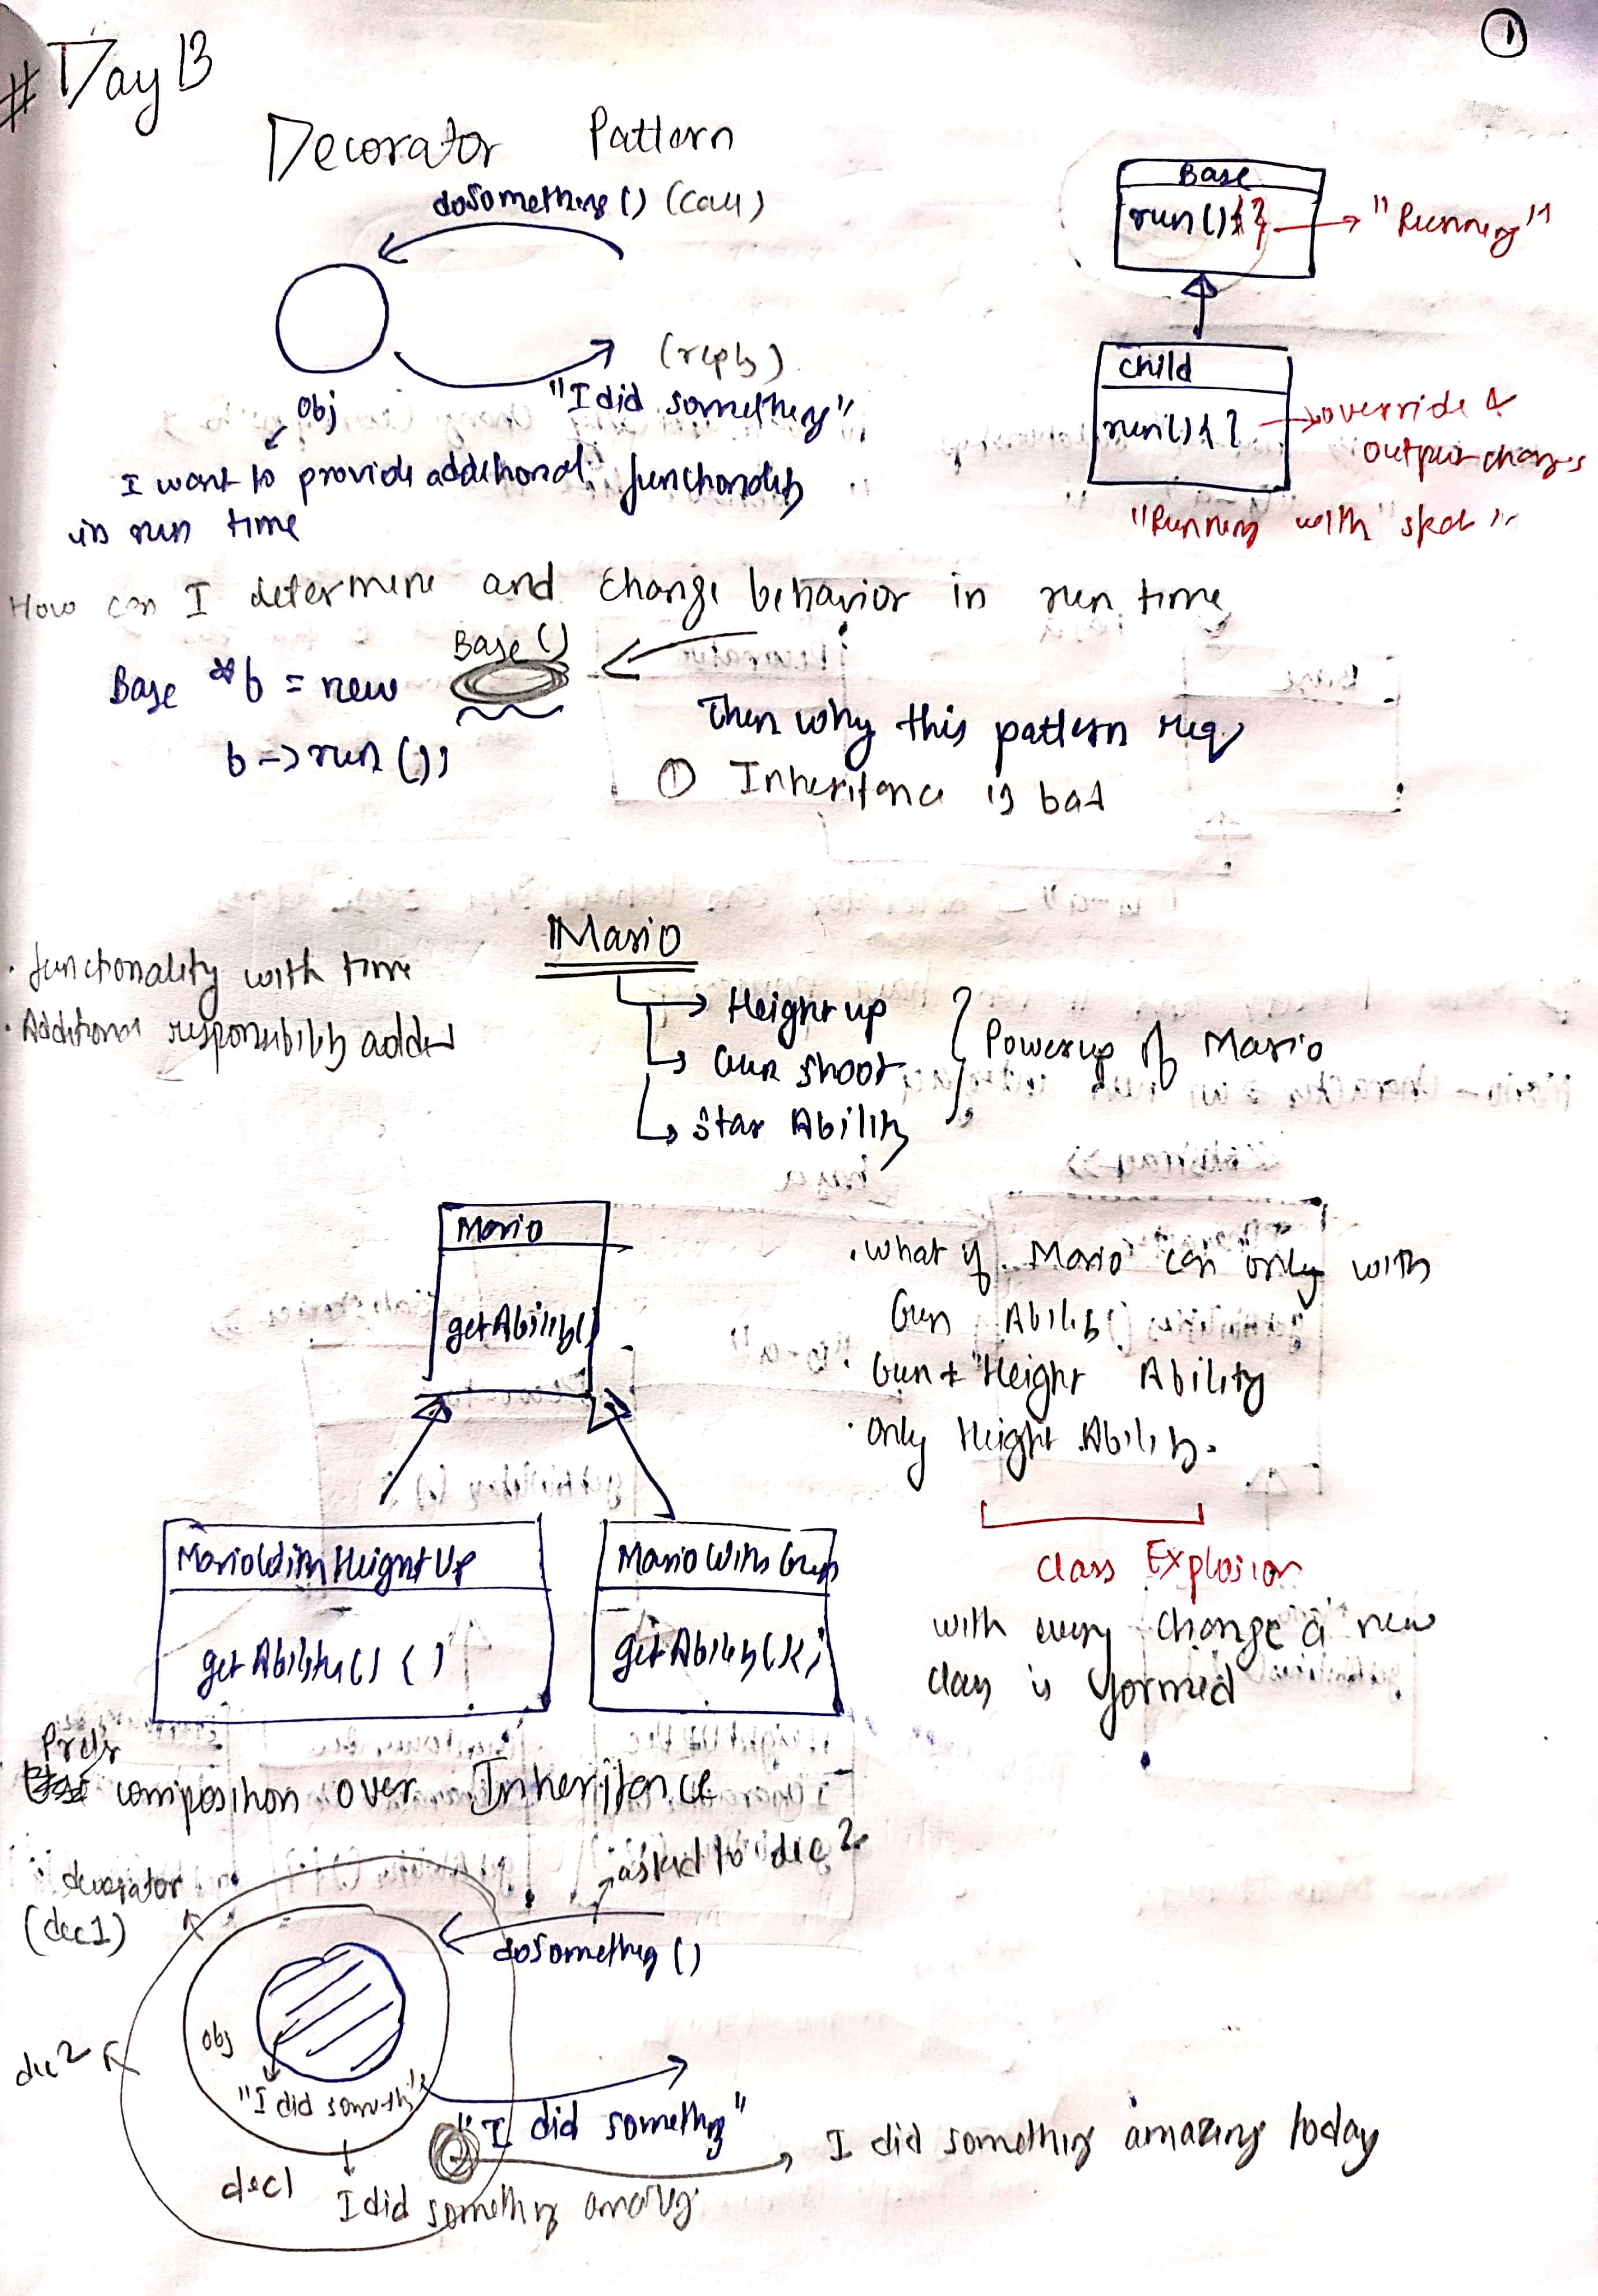 ①
# Day 13
Decorator Pattern
doSomething() (call)
(reply)
"I did something"
obj
I want to provide additional functionality
in run time
Base
run(){} → "Running"
Child
run(){} → override &
output changes
"Running with skat"
How can I determine and change behavior in run time
Base *b = new Base()
b->run();
Then why this pattern req
① Inheritance is bad
Mario
. functionality with time
. Additional responsibility added
→ Height up
→ Gun shoot
→ Star Ability
Powerup of Mario
Mario
getAbility()
MarioWithHeightUp
getAbility() { }
MarioWithGun
getAbility(){}
. What if Mario can only with
Gun Ability
. Gun + Height Ability
. Only Height Ability.
Class Explosion
with every change a new
class is formed
Prefer
composition over Inheritence
decorator
(dec1)
asked to dec2
doSomething()
dec2
obj
"I did someth"
"I did something"
I did something amazing today
dec1
I did something amazing